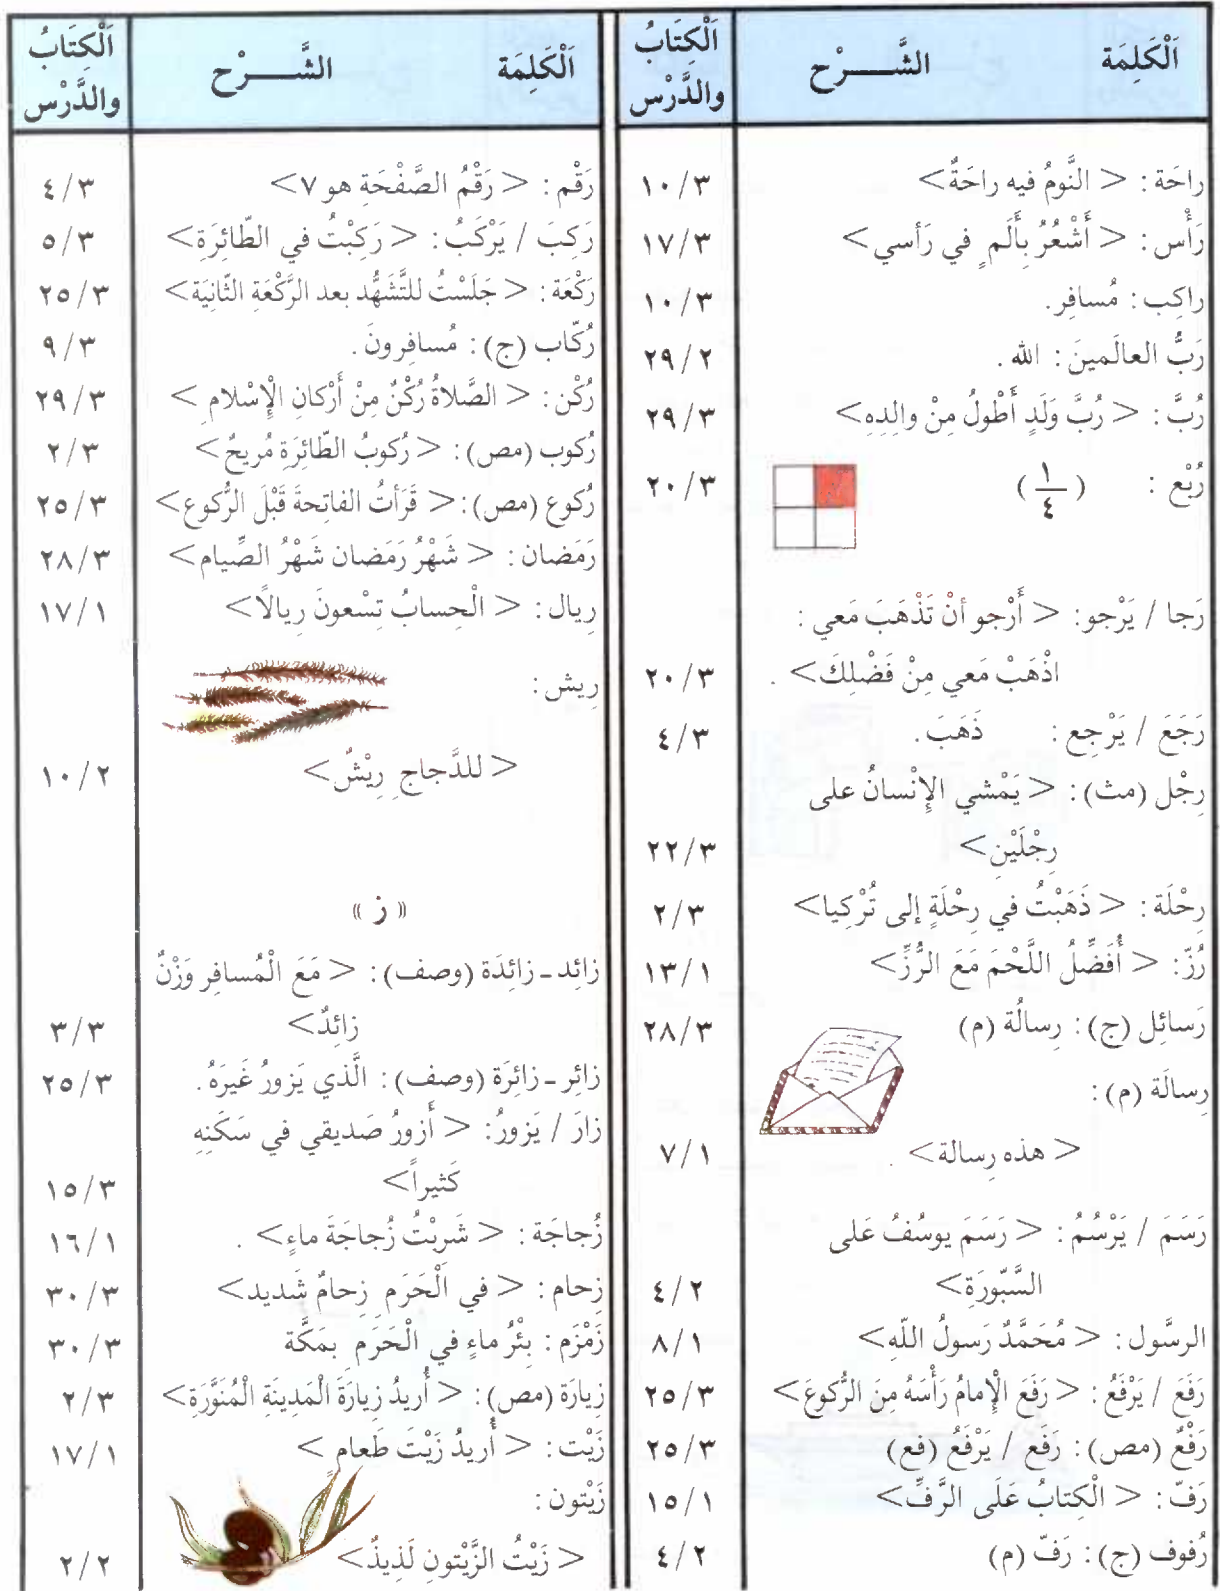 اَلْكَلِمَة الشَّـــرْح اَلْكِتَابُ والدَّرْس
راحَة : < النَّومُ فيه راحَةٌ> ١٠/٣
رَأْس : < أَشْعُرُ بِأَلَمٍ في رَأسي> ١٧/٣
راكِب : مُسافِر. ١٠/٣
رَبُّ العالَمينَ : الله . ٢٩/٢
رُبَّ : < رُبَّ وَلَدٍ أَطْولُ مِنْ والِدِهِ> ٢٩/٣
رُبْع : (١/٤) ٢٠/٣
رَجا / يَرْجو: < أَرْجو أنْ تَذْهَبَ مَعي :
اذْهَبْ مَعي مِنْ فَضْلِكَ> . ٢٠/٣
رَجَعَ / يَرْجِع : ذَهَبَ . ٤/٣
رِجْل (مث) : < يَمْشي الإِنْسانُ على
رِجْلَيْنِ> ٢٢/٣
رِحْلَة : < ذَهَبْتُ في رِحْلَةٍ إلى تُرْكِيا> ٢/٣
رُزّ: < أُفَضِّلُ اللَّحْمَ مَعَ الرُّزِّ> ١٣/١
رَسائِل (ج) : رِسالُة (م) ٢٨/٣
رِسالَة (م) :
< هذه رِسالة> . ٧/١
رَسَمَ / يَرْسُمُ : < رَسَمَ يوسُفُ عَلى
السَّبّورَةِ> ٤/٢
الرسَّول : < مُحَمَّدٌ رَسولُ اللّهِ> ٨/١
رَفَعَ / يَرْفَعُ : < رَفَعَ الْإِمامُ رَأْسَهُ مِنَ الرُّكوعَ> ٢٥/٣
رَفْعٌ (مص) : رَفَع / يَرْفَعُ (فع) ٢٥/٣
رَفّ : < الْكِتابُ عَلَى الرَّفِّ> ١٥/١
رُفوف (ج) : رَفّ (م) ٤/٢
اَلْكَلِمَة الشَّـــرْح اَلْكِتَابُ والدَّرْس
رَقْم : < رَقْمُ الصَّفْحَةِ هو ٧> ٤/٣
رَكِبَ / يَرْكَبُ : < رَكِبْتُ في الطّائِرَةِ> ٥/٣
رَكْعَة : < جَلَسْتُ للتَّشَهُّد بعد الرَّكْعَةِ الثّانِيَة> ٢٥/٣
رُكّاب (ج) : مُسافِرونَ . ٩/٣
رُكْن : < الصَّلاةُ رُكْنٌ مِنْ أَرْكانِ الْإِسْلامِ > ٢٩/٣
رُكوب (مص) : < رُكوبُ الطّائِرَةِ مُريحٌ> ٢/٣
رُكوع (مص) : < قَرَأتُ الفاتِحةَ قَبْلَ الرُّكوع> ٢٥/٣
رَمَضان : < شَهْرُ رَمَضان شَهْرُ الصِّيام> ٢٨/٣
رِيال : < الْحِسابُ تِسْعونَ رِيالاً> ١٧/١
رِيش :
< للدَّجاجِ رِيْشٌ> ١٠/٢
« ز »
زائِد ـ زائِدَة (وصف) : < مَعَ الْمُسافِر وَزْنٌ
زائِدٌ> ٣/٣
زائِر ـ زائِرَة (وصف) : الَّذي يَزورُ غَيرَهُ . ٢٥/٣
زارَ / يَزورُ : < أَزورُ صَديقي في سَكَنِهِ
كَثيراً> ١٥/٣
زُجاجَة : < شَرِبْتُ زُجاجَةَ ماءٍ> . ١٦/١
زِحام : < في اَلْحَرَمِ زِحامٌ شَديد> ٣٠/٣
زَمْزَم : بِئْرُ ماءٍ في الْحَرَمِ بمَكَّة ٣٠/٣
زِيارَة (مص) : < أُريدُ زِيارَةَ الْمَدِينَةِ الْمُنَوَّرَةِ> ٢/٣
زَيْت : < أُريدُ زَيْتَ طَعامٍ > ١٧/١
زَيْتون :
< زَيْتُ الزَّيْتونِ لَذِيذٌ> ٢/٢